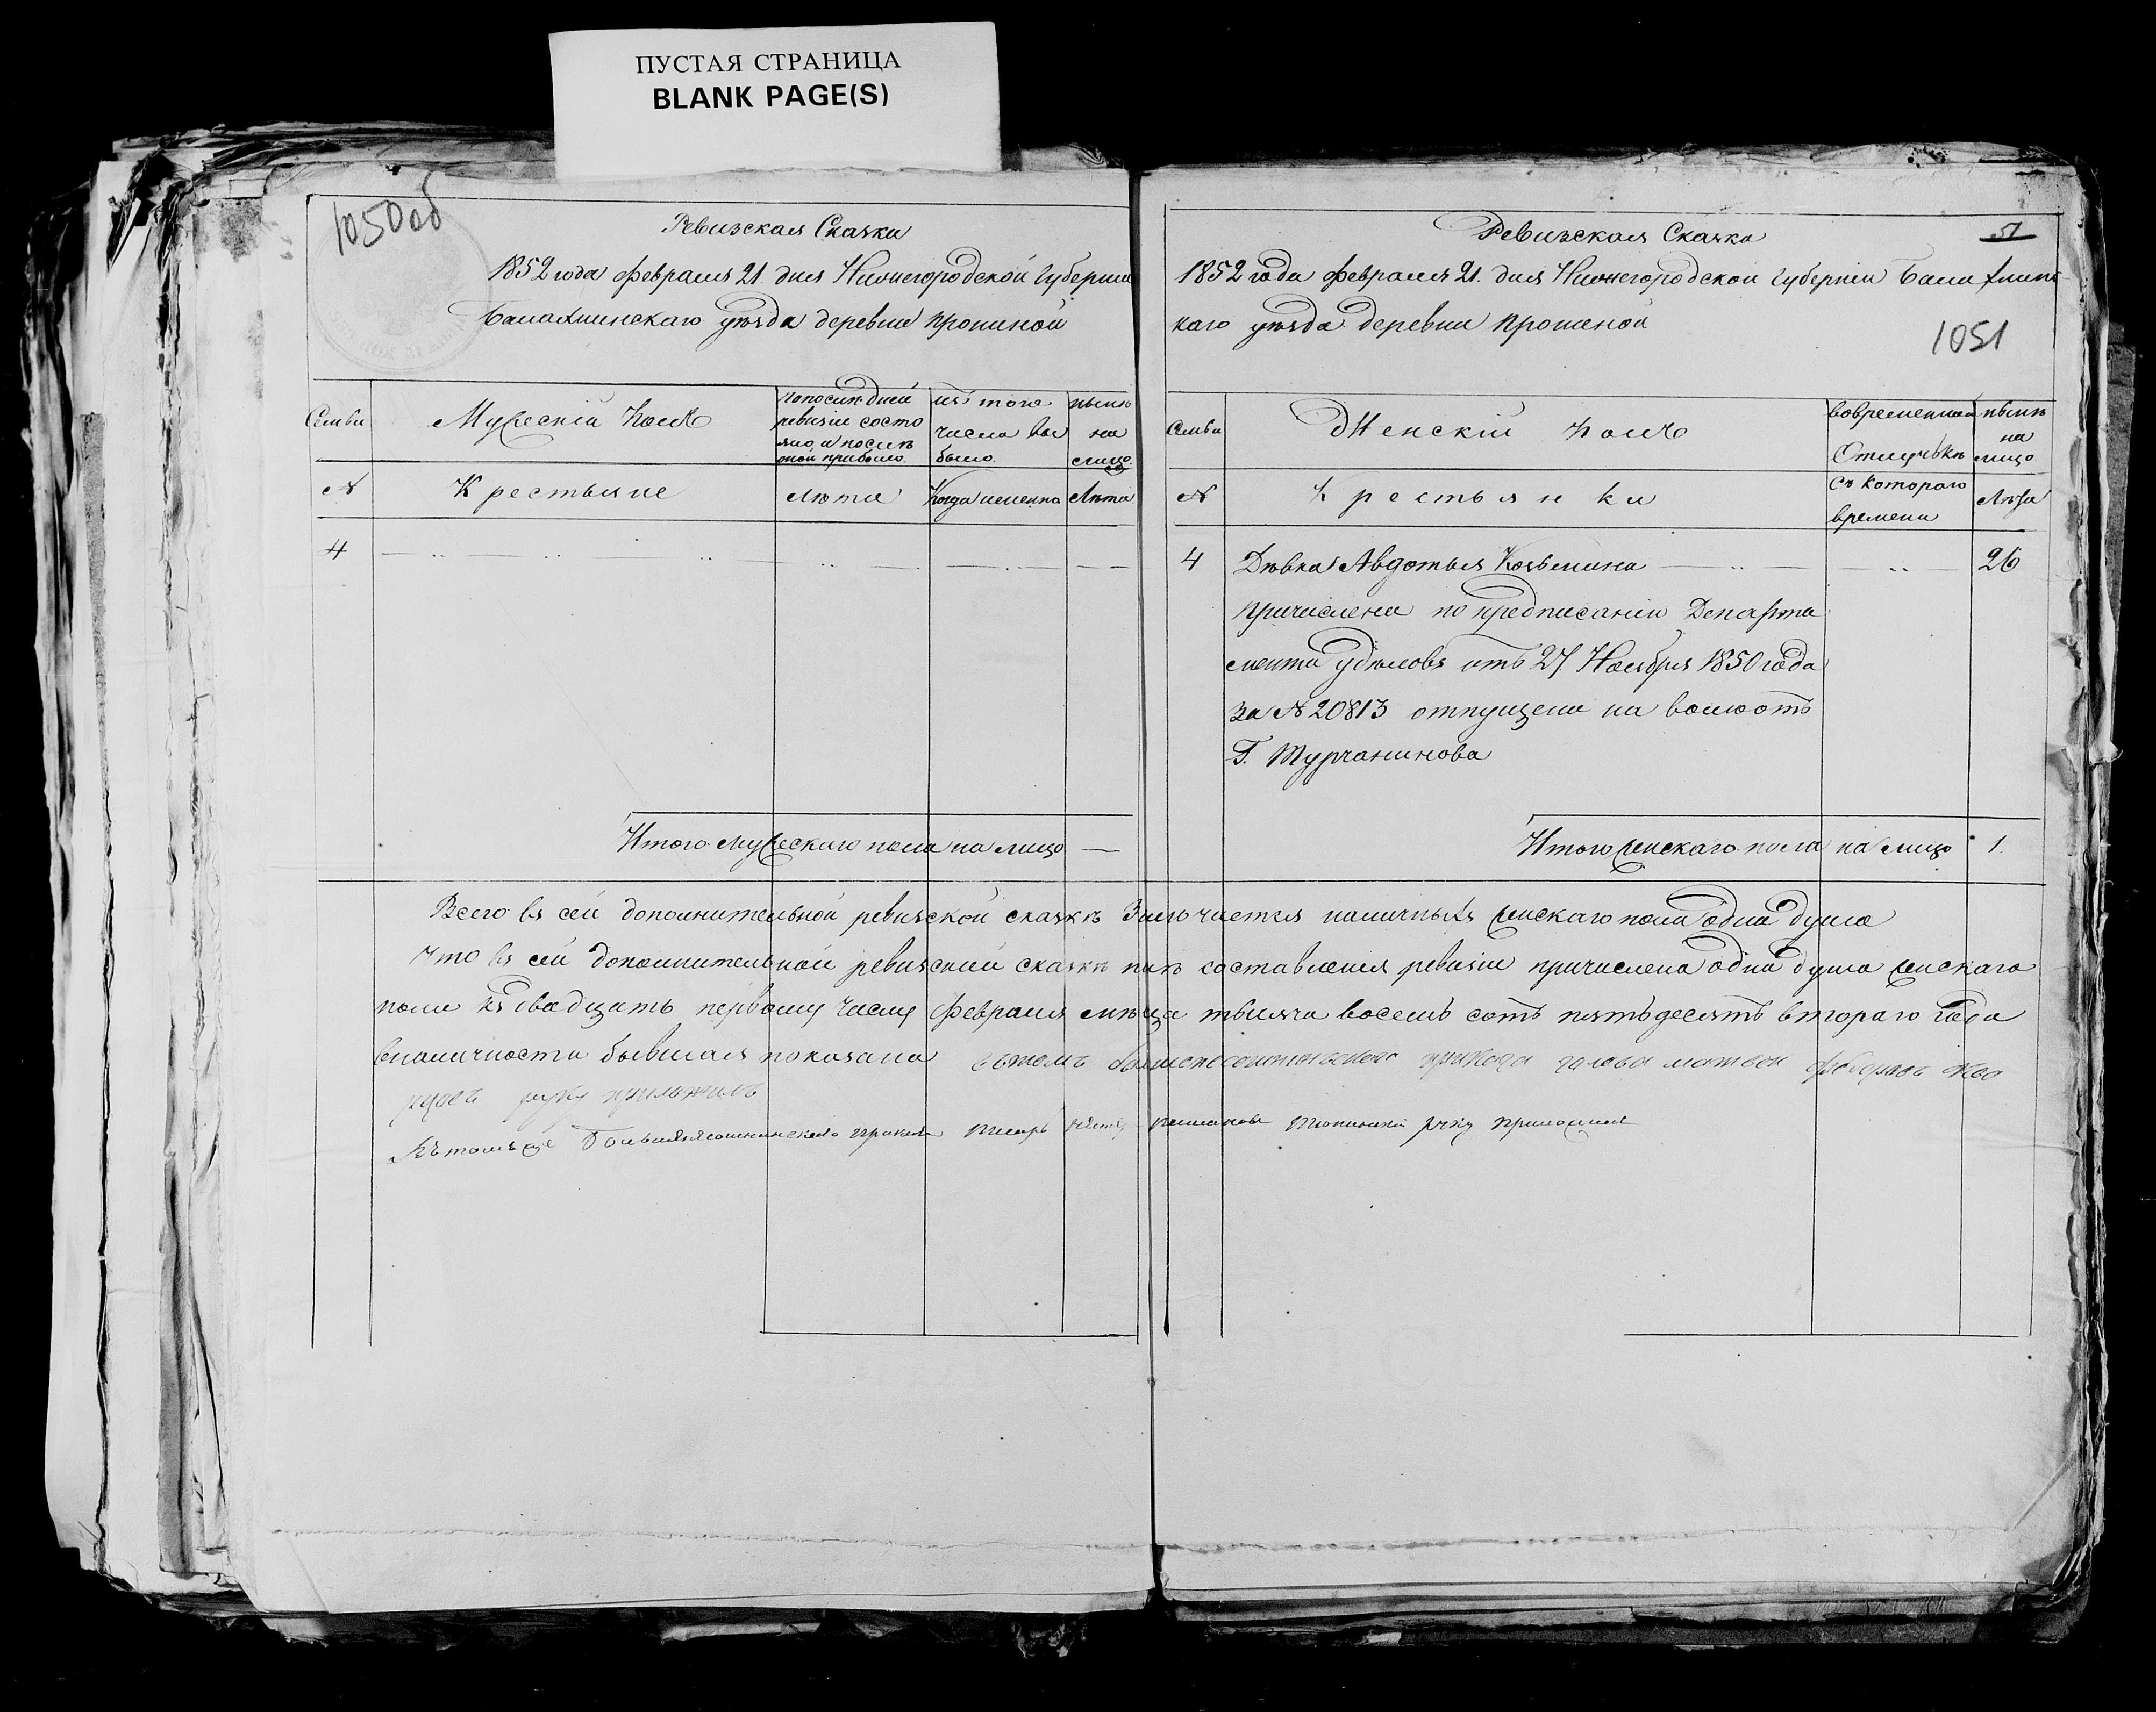 ПУСТАЯ СТРАНИЦА
BLANK PAGE(S)
1050об
Ревизская Сказка
1852 года февраля 21. дня Нижегородской Губерніи
Балахнинскаго уѣзда деревни Прониной
Семьи
Мужескій полъ
По послѣдней ревизіи состояло и послѣ оной прибыло.
изъ того числа выбыло.
нынѣ на лицо.
№
Крестьяне
Лѣта
Когда именно
Лѣта
4
Итого мужескаго пола на лицо —
Ревизская Сказка
51
1852 года февраля 21. дня Нижегородской Губерніи Балахнинс
каго уѣзда деревни Прониной
1051
Семьи
Женскій полъ
во временной Отлучькѣ
нынѣ на лицо
№
Крестьянки
Съ котораго времени
Лѣта
4 Дѣвка Авдотья Козьмина 26
причислена по предписанію Департа
мента удѣловъ отъ 27 Ноября 1850 года
за № 20813 отпущена на волю отъ
Г. Турчанинова
Итого женскаго пола на лицо 1.
Всего въ сей дополнительной ревизской сказкѣ Заключается наличныхъ женскаго пола одна душа
Что въ сей дополнительной ревизской сказкѣ составленія ревизіи причислена одна душа женскаго
пола къ двадцать первому числу февраля мѣсяца тысяча восемь сотъ пятьдесятъ втораго года
вналичности бывшая показана въ томъ приказа голова матвей
руку приложилъ
Къ томуже приказа писарь руку приложилъ